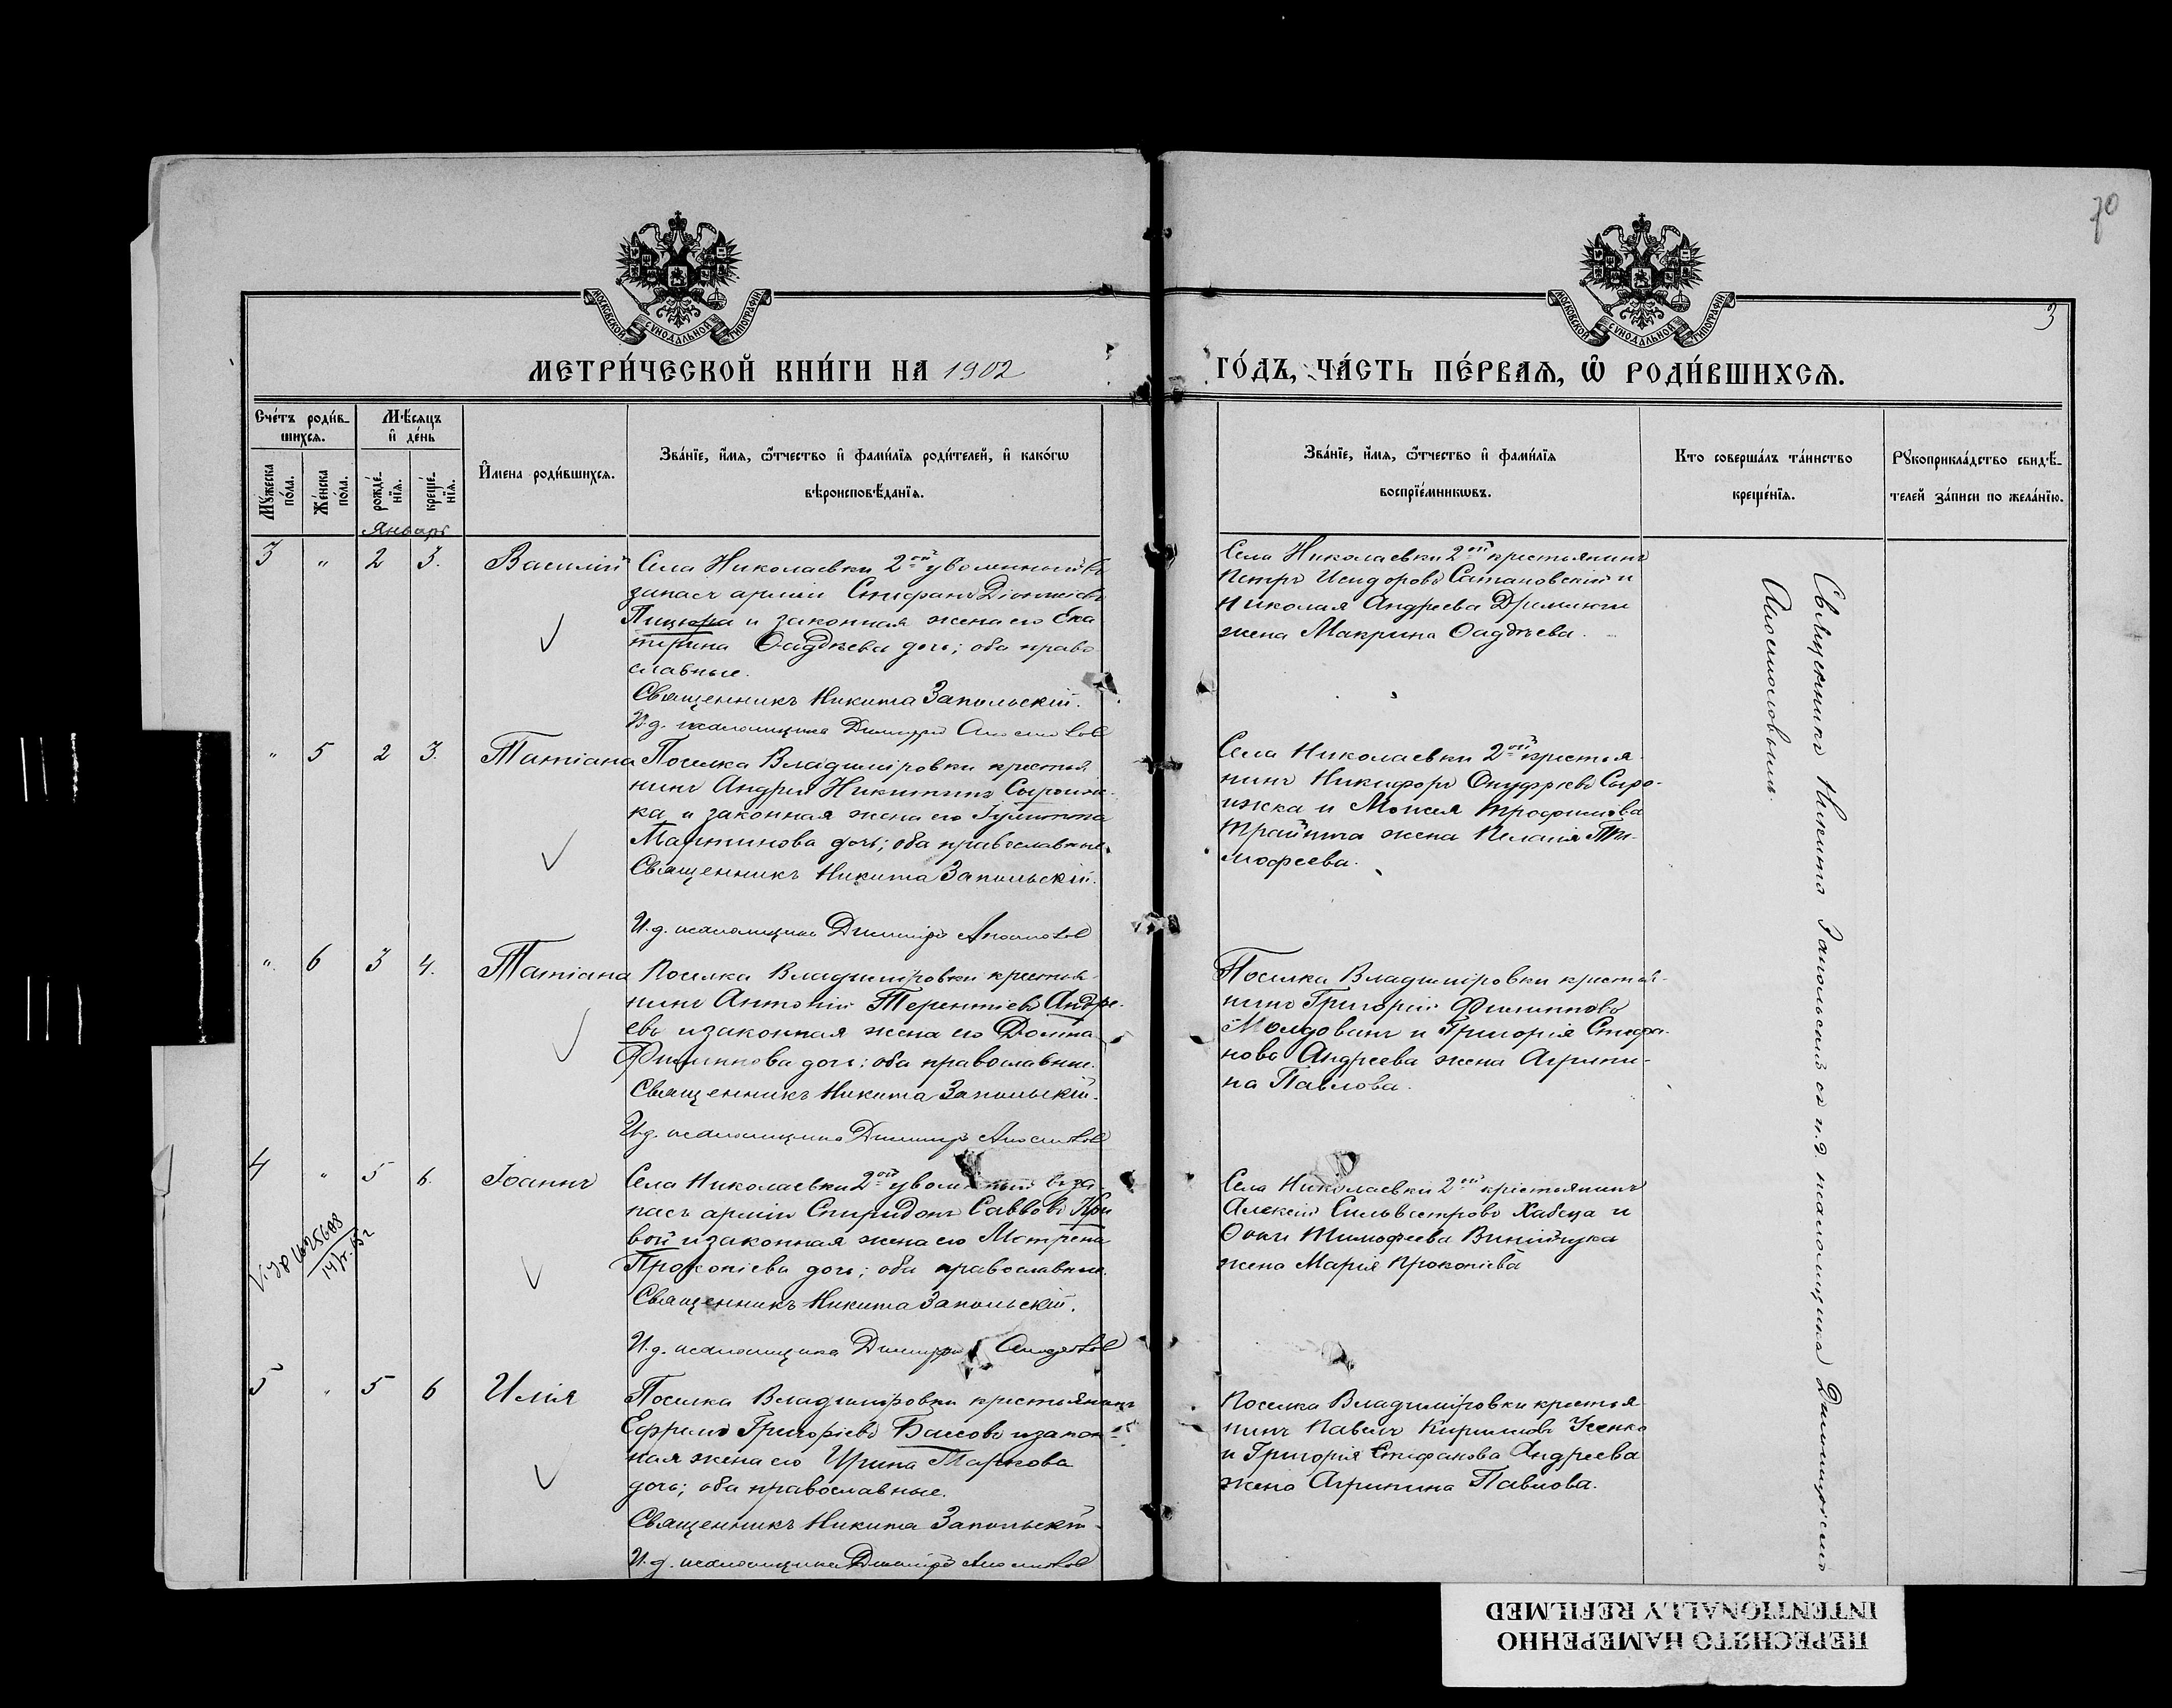 70
3
МОСКОВСКОЙ СѴНОДАЛЬНОЙ ТИПОГРАФІИ
МОСКОВСКОЙ СѴНОДАЛЬНОЙ ТИПОГРАФІИ
МЕТРИ́ЧЕСКОЙ КНИ́ГИ НА 1902
ГО́ДЪ, ЧА́СТЬ ПЕ́РВАѦ, Ѡ҆ РОДИ́ВШИХСѦ.
Сче́тъ роди́в-
шихсѧ.
Мꙋ́жеска по́ла.
Же́нска по́ла.
Мѣ́сѧцъ
и҆ де́нь
рожде́-нїѧ.
креще́-нїѧ.
И҆мена̀ роди́вшихсѧ.
Зва́нїе, и҆́мѧ, ѻ҆́тчество и҆ фами́лїѧ роди́телей, и҆ како́гѡ
вѣроисповѣ́данїѧ.
Зва́нїе, и҆́мѧ, ѻ҆́тчество и҆ фами́лїѧ
воспрїе́мникѡвъ.
Кто̀ соверша́лъ та́инство
креще́нїѧ.
Рꙋкоприкла́дство свидѣ́-
телей за́писи по жела́нїю.
Январь
3 " 2 3. Василій
Села Николаевки 2ой уволенный въ
запасъ арміи Стефанъ Діонисіевъ
Пицюра и законная жена его Ека
терина Ѳаддѣева дочь; оба право
славные.
Священникъ Никита Запольскій.
И.д. псаломщика Димитрій
Села Николаевки 2ой крестьянинъ
Петръ Исидоровъ Сатановскій и
Николая Андреева
жена Макрина Ѳаддѣева.
" 5 2 3. Татіана
Поселка Владиміровки крестья
нинъ Андрей Никитинъ Сыроиж-
ка и законная жена его Іулитта
Мартинова дочь; оба православные
Священникъ Никита Запольскій.
И.д. псаломщика Димитрій
Села Николаевки 2ой крестья
нинъ Никифоръ Онуфріевъ Сыро-
ижка и Моисея Трофимова
жена Пелагія Ти-
мофеева.
" 6 3 4. Татіана
Поселка Владиміровки крестья-
нинъ Антоній Терентіевъ Андре-
евъ и законная жена его Домна
Филиппова дочь; оба православные.
Священникъ Никита Запольскій.
И.д. псаломщика Димитрій
Поселка Владиміровки крестья-
нинъ Григорій Филипповъ
Молдованъ и Григорія Стефа-
нова Андреева жена Агрипи-
на Павлова.
4 " 5 6. Іоаннъ
Села Николаевки 2ой уволенный въ за-
пасъ арміи Спиридонъ Саввовъ Кри
вой и законная жена его Мотрена
Прокопіева дочь; оба православные.
Священникъ Никита Запольскій.
И.д. псаломщика Димитрій
Села Николаевки 2ой крестьянинъ
Алексій Сильвестровъ Хабеца и
Ѳомы Тимофеева Винійчука
жена Марія Прокопіева
5 " 5 6 Илія
Поселка Владиміровки крестьянинъ
Ефремъ Григоріевъ Баевъ и закон-
ная жена его Ирина Маркова
дочь; оба православные.
Священникъ Никита Запольскій.
И.д. псаломщика Димитрій
Поселка Владиміровки крестья
нинъ Павелъ Кириловъ Усенко
и Григорія Стефанова Андреева
жена Агрипина Павлова.
Священникъ Никита Запольскій съ и.д. псаломщика Димитріемъ
ПЕРЕСНЯТО НАМЕРЕННО
INTENTIONALLY REFILMED